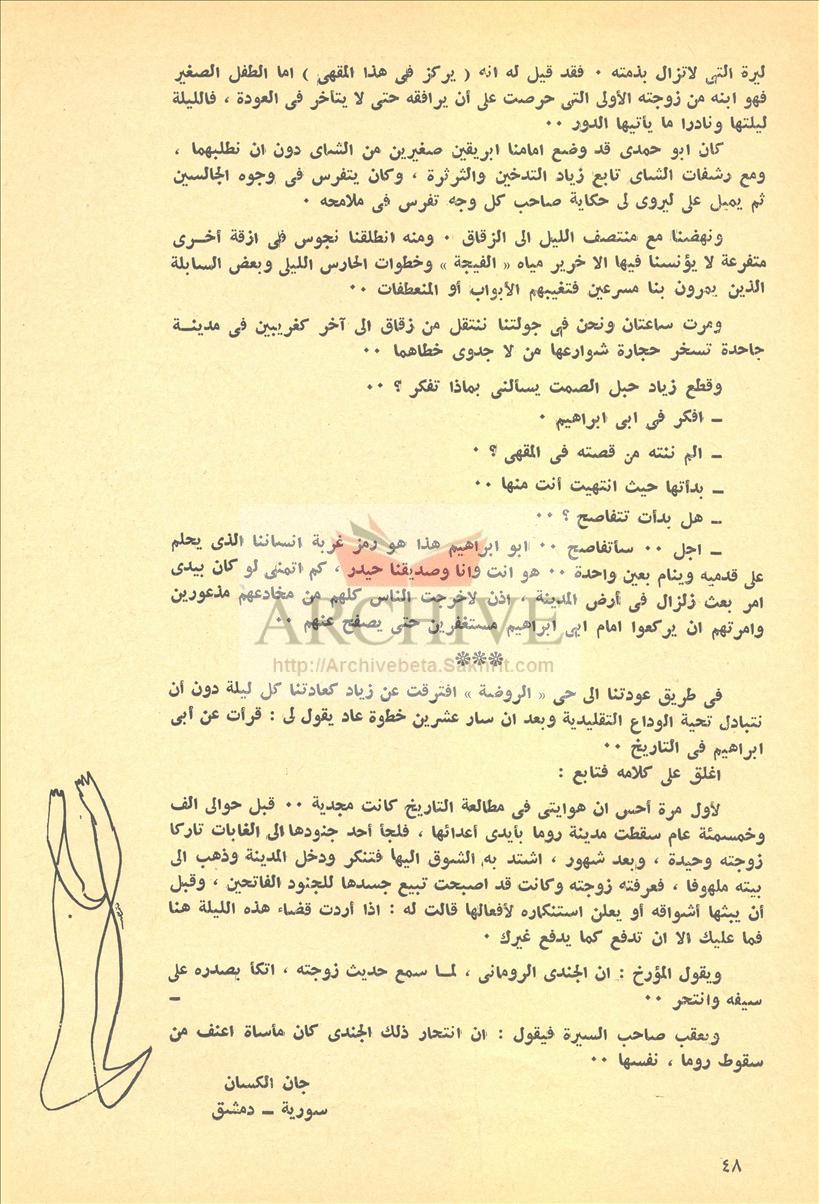 ليرة التي لاتزال بذمته ٠ فقد قيل له انه ( يركز في هذا المقهى ) اما الطفل الصغير
فهو ابنه من زوجته الأولى التي حرصت على أن يرافقه حتى لا يتأخر في العودة ، فالليلة
ليلتها ونادرا ما يأتيها الدور ٠٠
كان ابو حمدي قد وضع امامنا ابريقين صغيرين من الشاي دون ان نطلبهما ،
ومع رشفات الشاي تابع زياد التدخين والثرثرة ، وكان يتفرس في وجوه الجالسين
ثم يميل على ليروى لى حكاية صاحب كل وجه تفرس في ملامحه ٠
ونهضنا مع منتصف الليل الى الزقاق ٠ ومنه انطلقنا نجوس في ازقة أخـرى
متفرعة لا يؤنسنا فيها الا خرير مياه « الفيجة » وخطوات الحارس الليلى وبعض السابلة
الذين يمرون بنا مسرعين فتغيبهم الأبواب أو المنعطفات ٠٠
ومرت ساعتان ونحن في جولتنا ننتقل من زقاق الى آخر كغريبين في مدينـــة
جاحدة تسخر حجارة شوارعها من لا جدوى خطاهما ٠٠
وقطع زياد حبل الصمت يسألنى بماذا تفكر ؟ ٠٠
ــ افكر في ابى ابراهيم ٠
ــ الم ننته من قصته في المقهى ؟ ٠
ــ بدأتها حيث انتهيت أنت منها ٠٠
ــ هل بدأت تتفاصح ؟ ٠٠
ــ اجل ٠٠ سأتفاصح ٠٠ ابو ابراهيم هذا هو رمز غربة انساننا الذى يحلم
على قدميه وينام بعين واحدة ٠٠ هو انت وانا وصديقنا حيدر ، كم اتمنى لو كان بيدى
امر بعث زلزال في أرض المدينة ، اذن لاخرجت الناس كلهم من مخادعهم مذعورين
وامرتهم ان يركعوا امام ابى ابراهيم مستغفرين حتى يصفح عنهم ٠٠
ARCHIVE
http://Archivebeta.Sakhrit.com
***
في طريق عودتنا الى حى « الروضة » افترقت عن زياد كعادتنا كل ليلة دون أن
نتبادل تحية الوداع التقليدية وبعد ان سار عشرين خطوة عاد يقول لى : قرأت عن أبى
ابراهيم في التاريخ ٠٠
اغلق على كلامه فتابع :
لأول مرة أحس ان هوايتى في مطالعة التاريخ كانت مجدية ٠٠ قبل حوالى الف
وخمسمئة عام سقطت مدينة روما بأيدى أعدائها ، فلجأ أحد جنودها الى الغابات تاركا
زوجته وحيدة ، وبعد شهور ، اشتد به الشوق اليها فتنكر ودخل المدينة وذهب الى
بيته ملهوفا ، فعرفته زوجته وكانت قد اصبحت تبيع جسدها للجنود الفاتحين ، وقبل
أن يبثها أشواقه أو يعلن استنكاره لأفعالها قالت له : اذا أردت قضاء هذه الليلة هنا
فما عليك الا ان تدفع كما يدفع غيرك ٠
ويقول المؤرخ : ان الجندى الرومانى ، لمــا سمع حديث زوجته ، اتكأ بصدره على
سيفه وانتحر ٠٠ ــ
ويعقب صاحب السيرة فيقول : ان انتحار ذلك الجندى كان مأساة اعنف من
سقوط روما ، نفسها ٠٠
جان الكسان
سورية ــ دمشق
٤٨